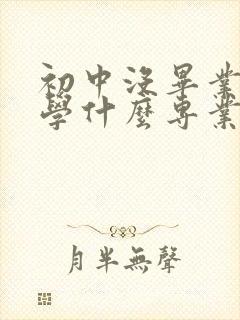 初中沒畢業
學什麼專業
月半無聲